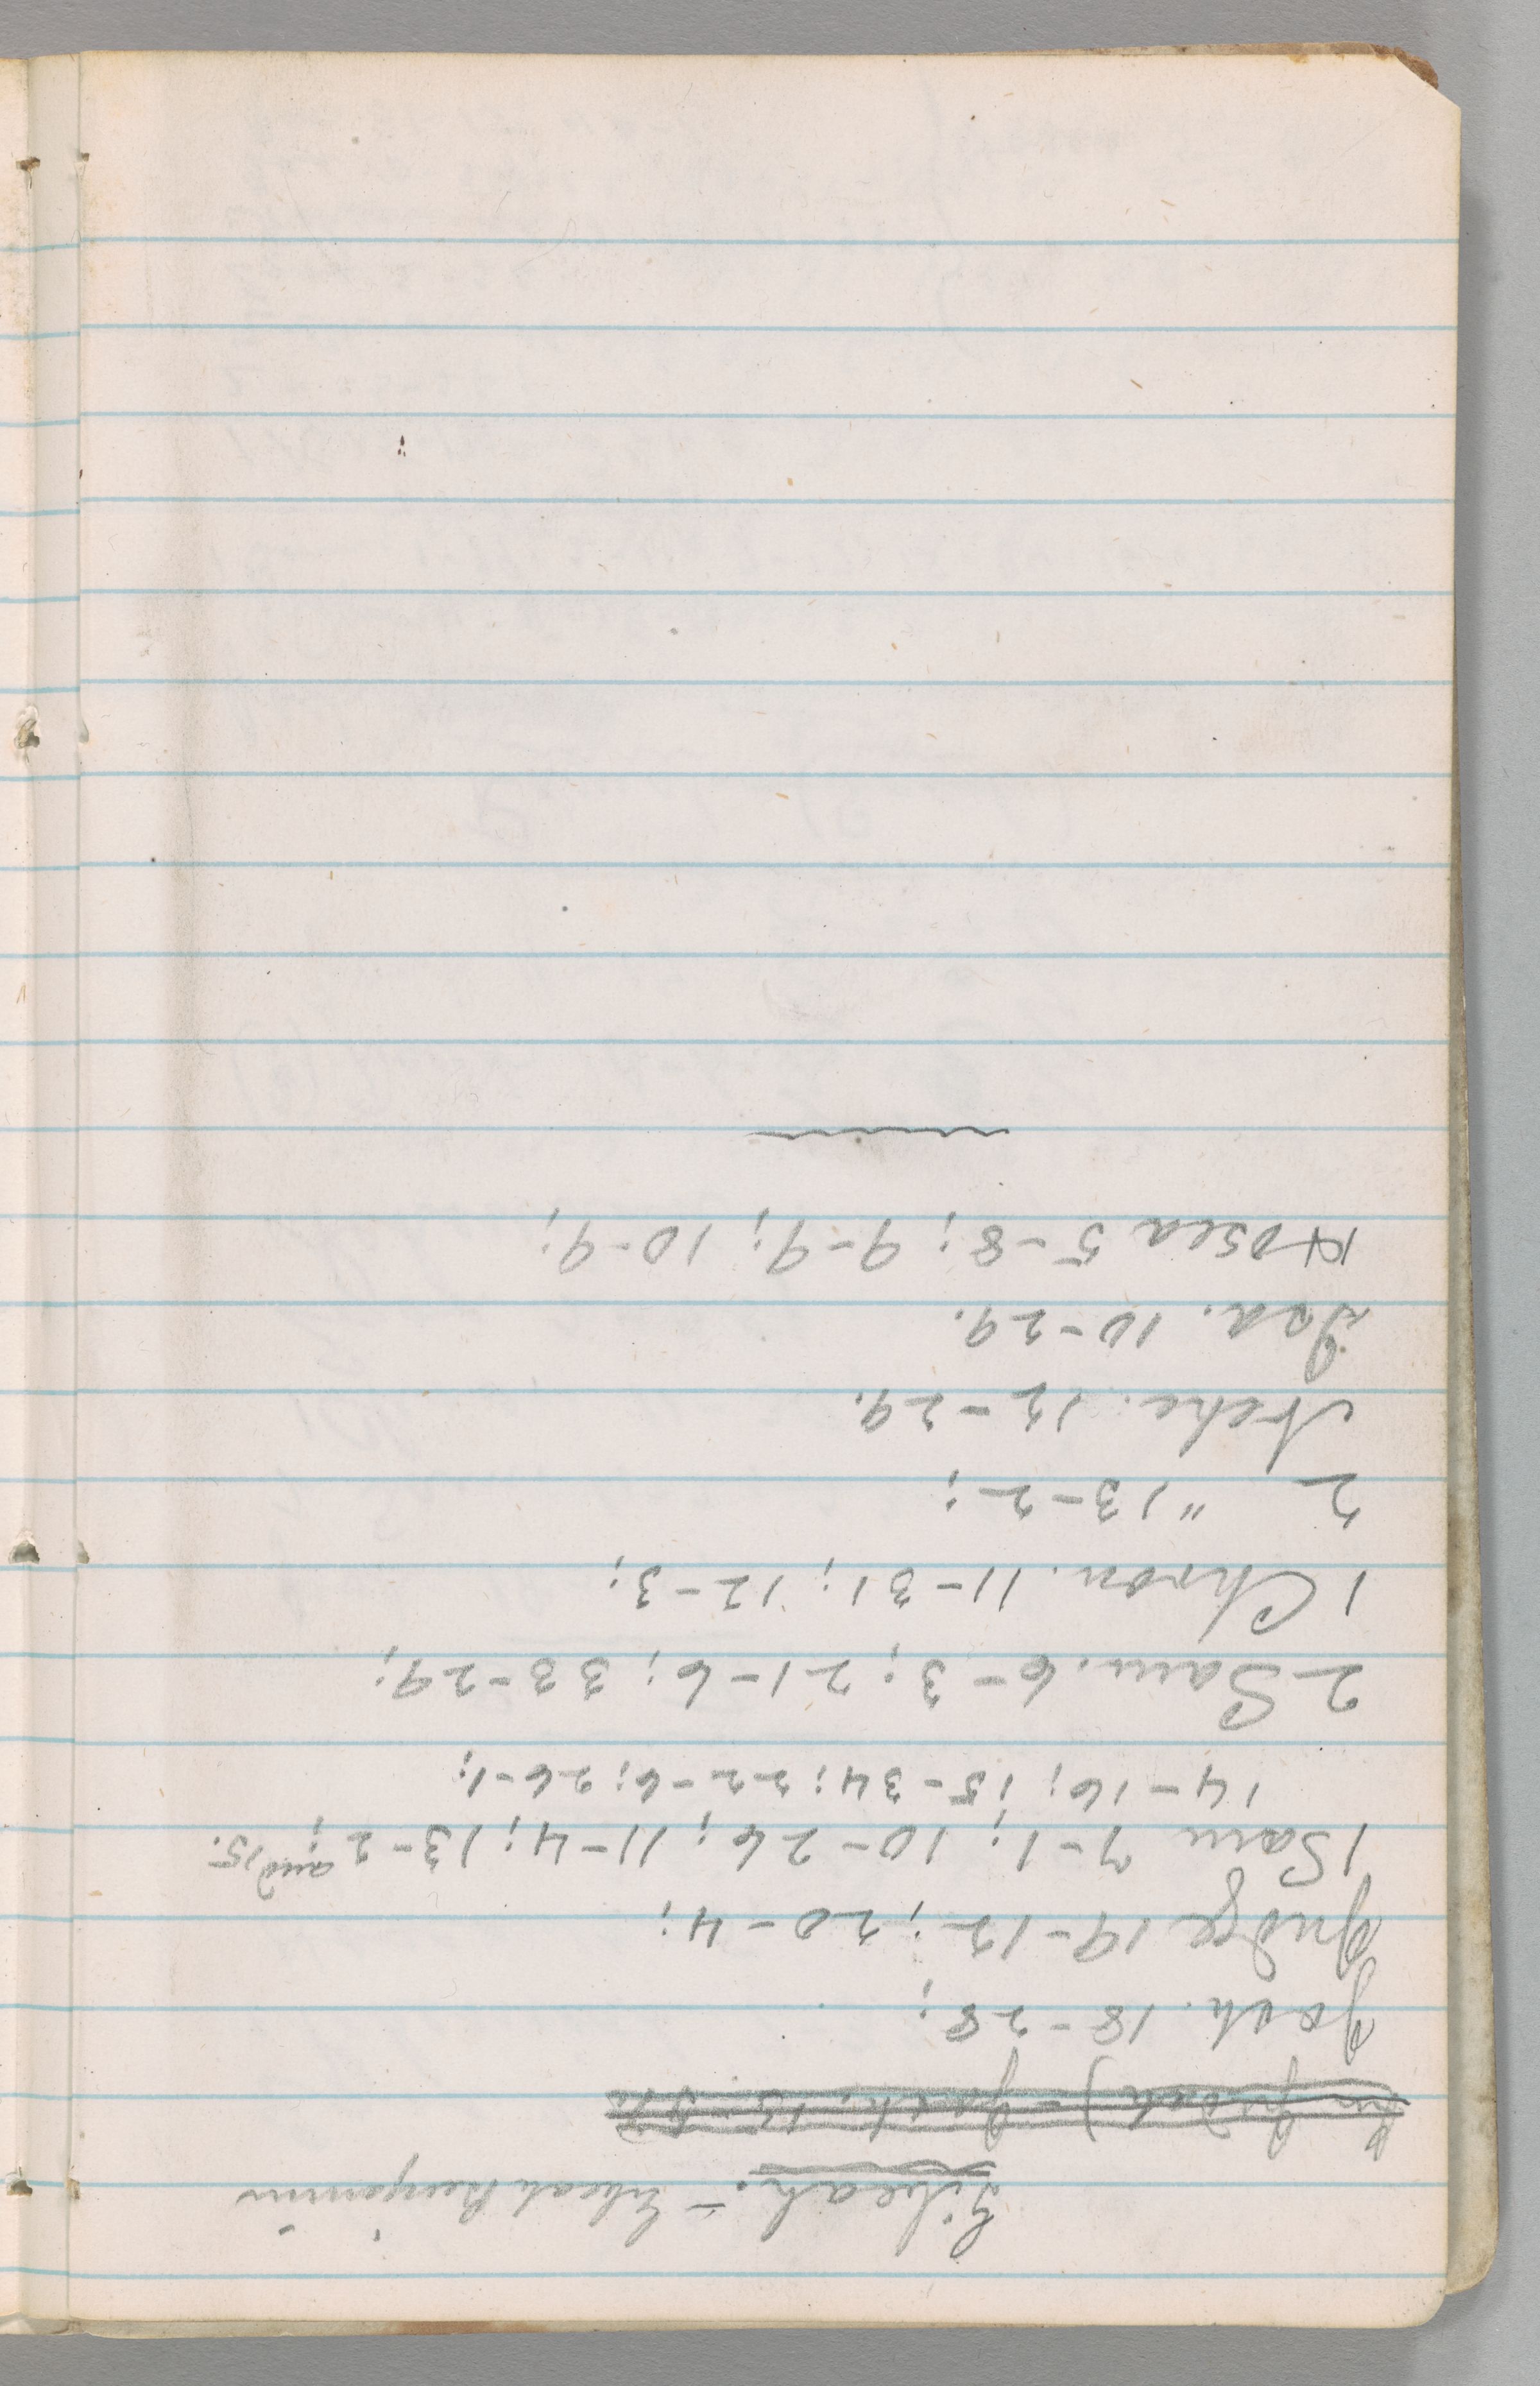 Gibeah. – Gibeah Benjamin
(in Judah) – Josh. 15-57;
Josh. 18-28;
Judge 19-12; 20-4;
1 Sam 7-1; 10-26; 11-4; 13-2; and 15.
14-16; 15-34; 22-6; 26-1;
2 Sam. 6-3; 21-6; 33-29;
1 Chron. 11-31; 12-3;
2 " 13-2;
Nehe. 12-29.
Isa. 10-29.
Hosea 5-8; 9-9; 10-9;